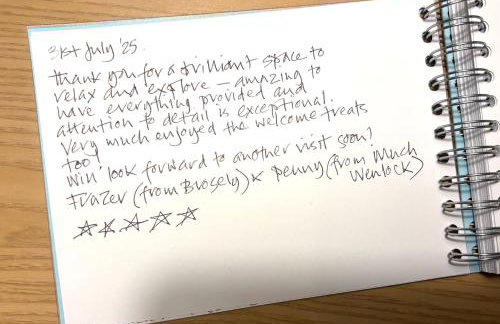 31st July '25.
Thank you for a brilliant space to
relax and explore — amazing to
have everything provided and
attention to detail is exceptional.
Very much enjoyed the welcome treats
too!
Will look forward to another visit soon!
Frazer (from Brosely) & Penny (from Much
Wenlock)